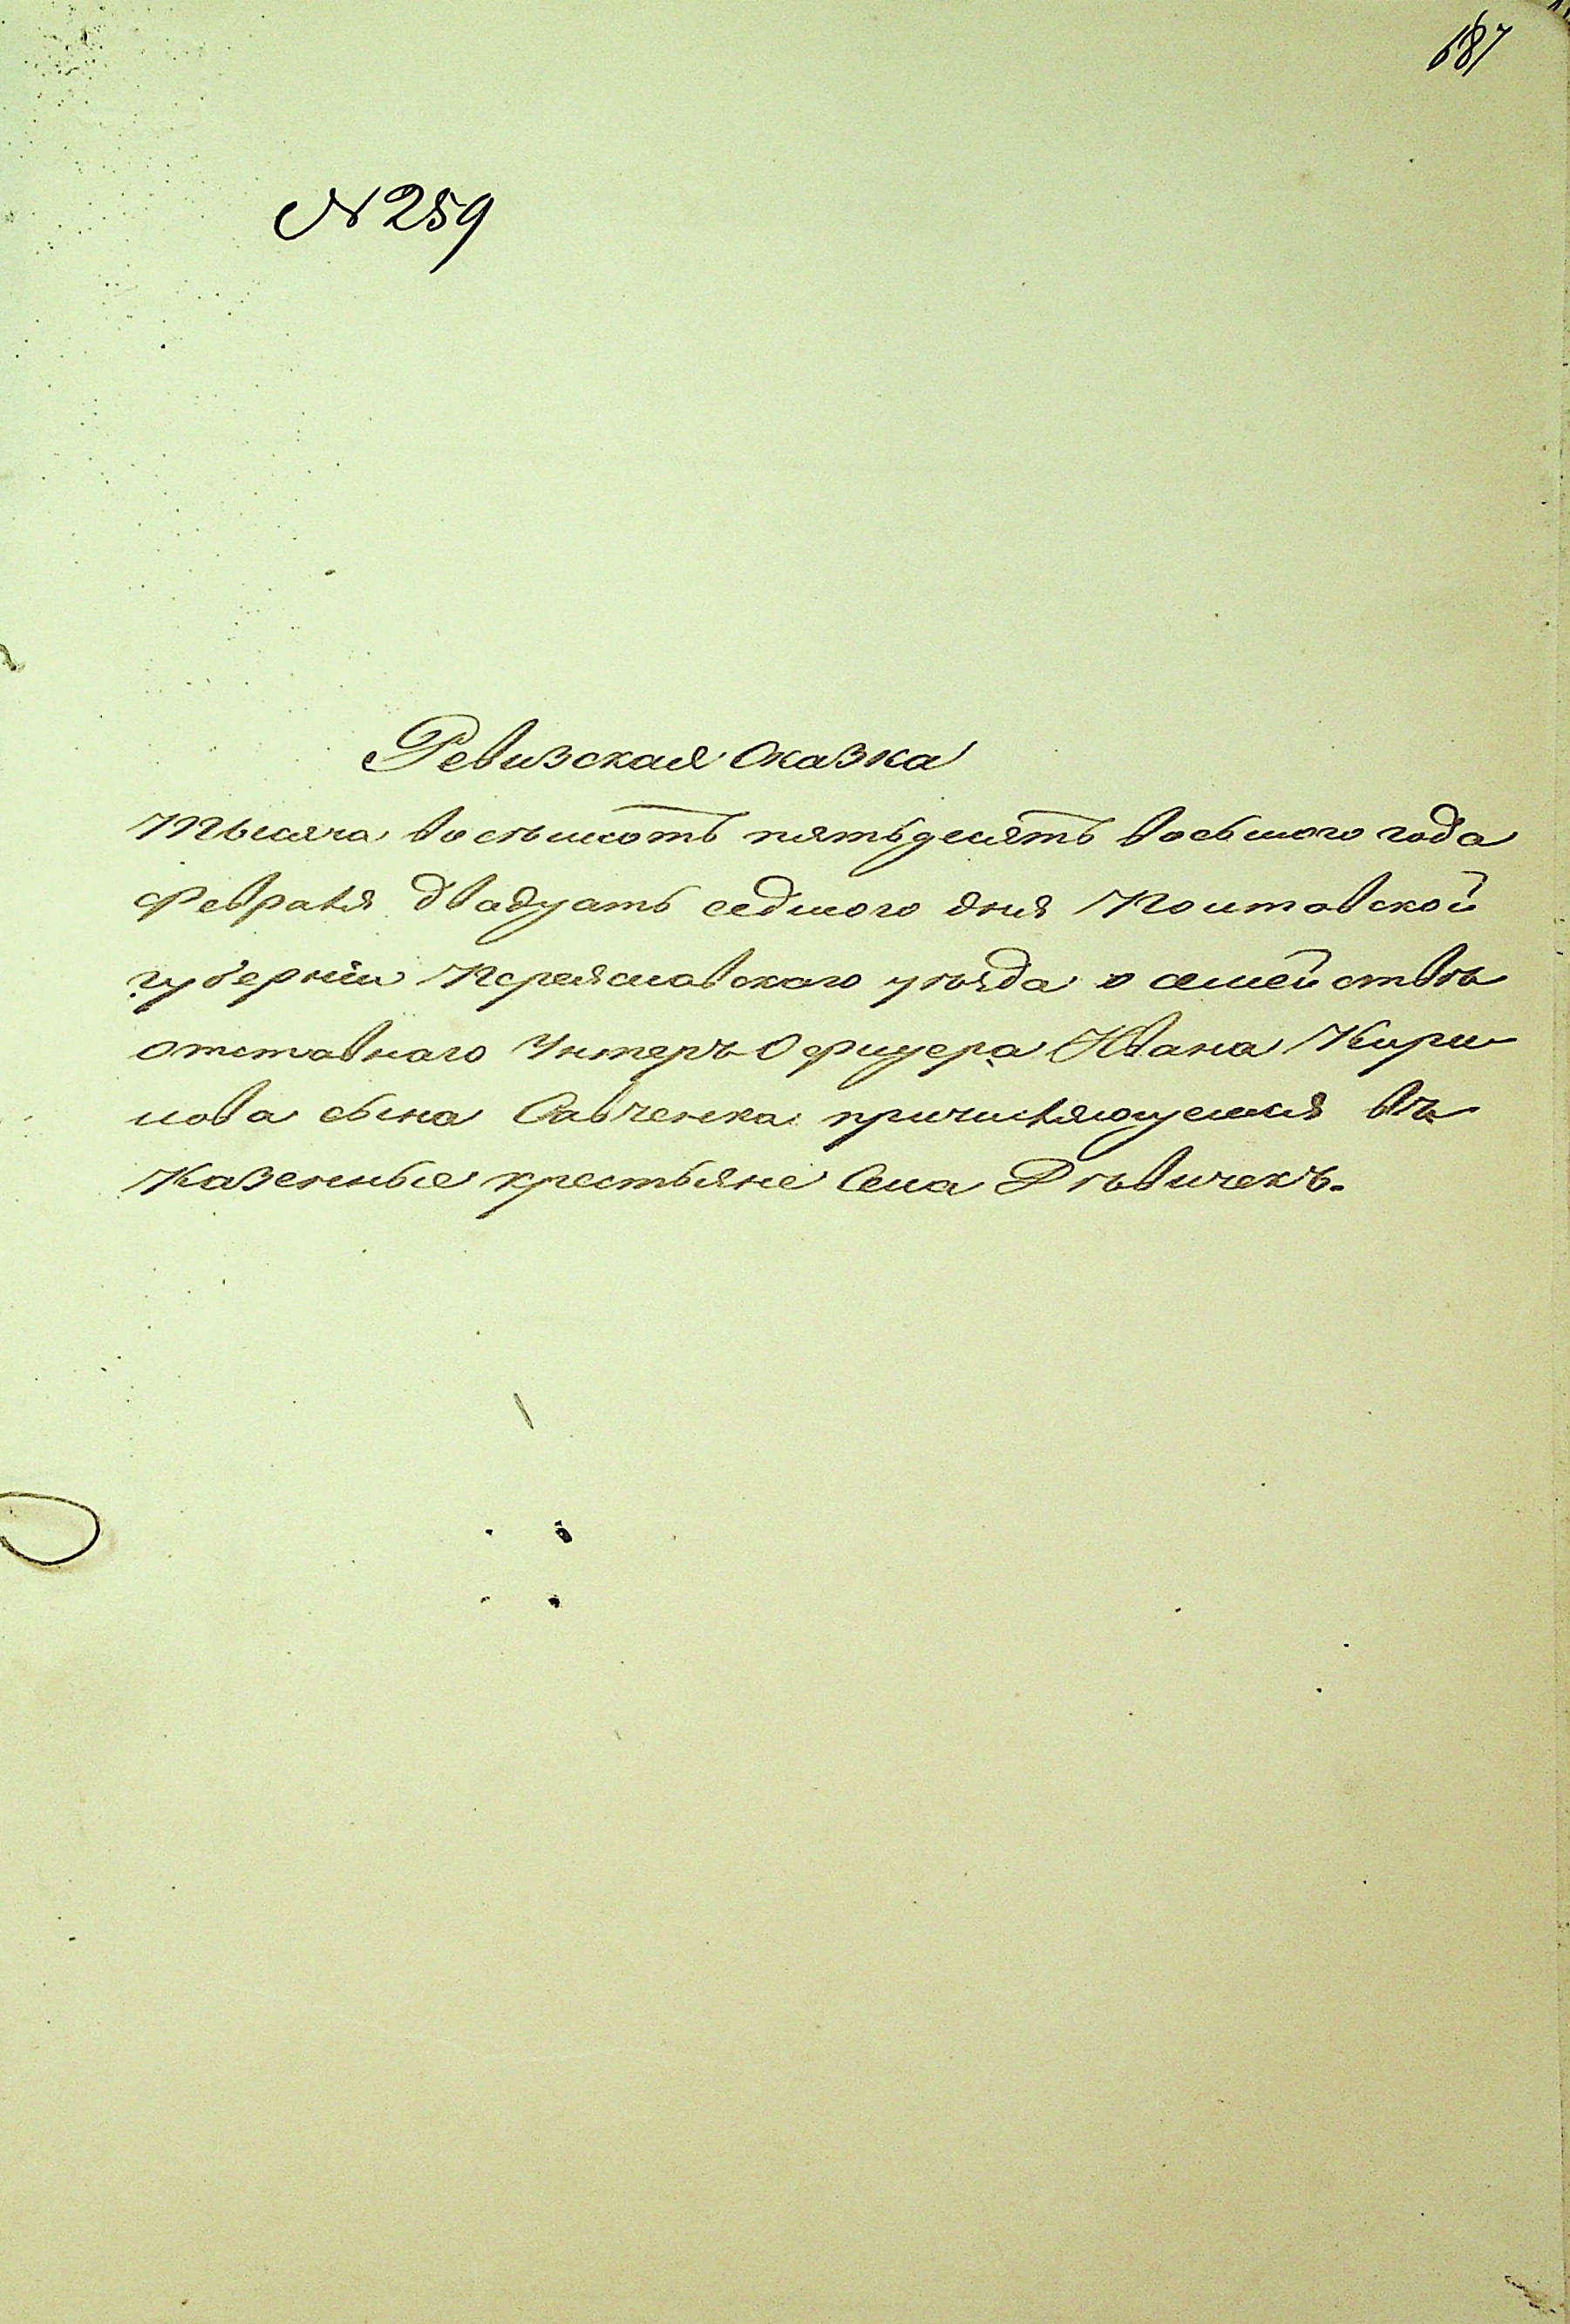 687
№ 259
Ревизская сказка
Тысяча восемьсотъ пятьдесятъ восьмого года
Февраля двадцать седмого дня Полтавской
губерніи Переяславскаго уѣзда о семействѣ
отставнаго Унтеръ-Офицера Ивана Кири
лова сына Савченка причисляющемся въ
Казенные крестьяне Села Дѣвичекъ.